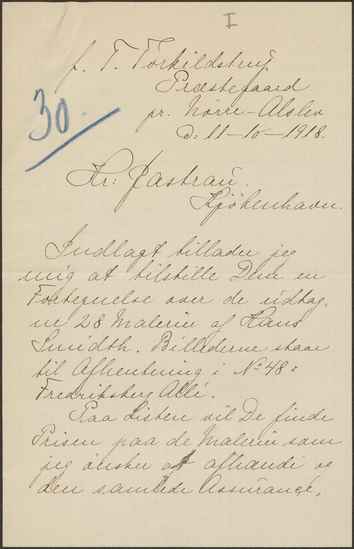 I
30.
p. T. Torkildstrup
Præstegaard
pr. Nørre-Alslev
D: 11-10-1918.
Hr: Jastrau.
Kjøbenhavn.
Indlagt tillader jeg
mig at tilstille Dem en
Fortegnelse over de udtag,
ne 28 Malerier af Hans
Smidth. Billederne staar
til Afhentning i No 48:
Fredriksberg Allé.
Paa Listen vil De finde
Prisen paa de Malerier som
jeg ønsker at afhænde og
den samlede Assurance.